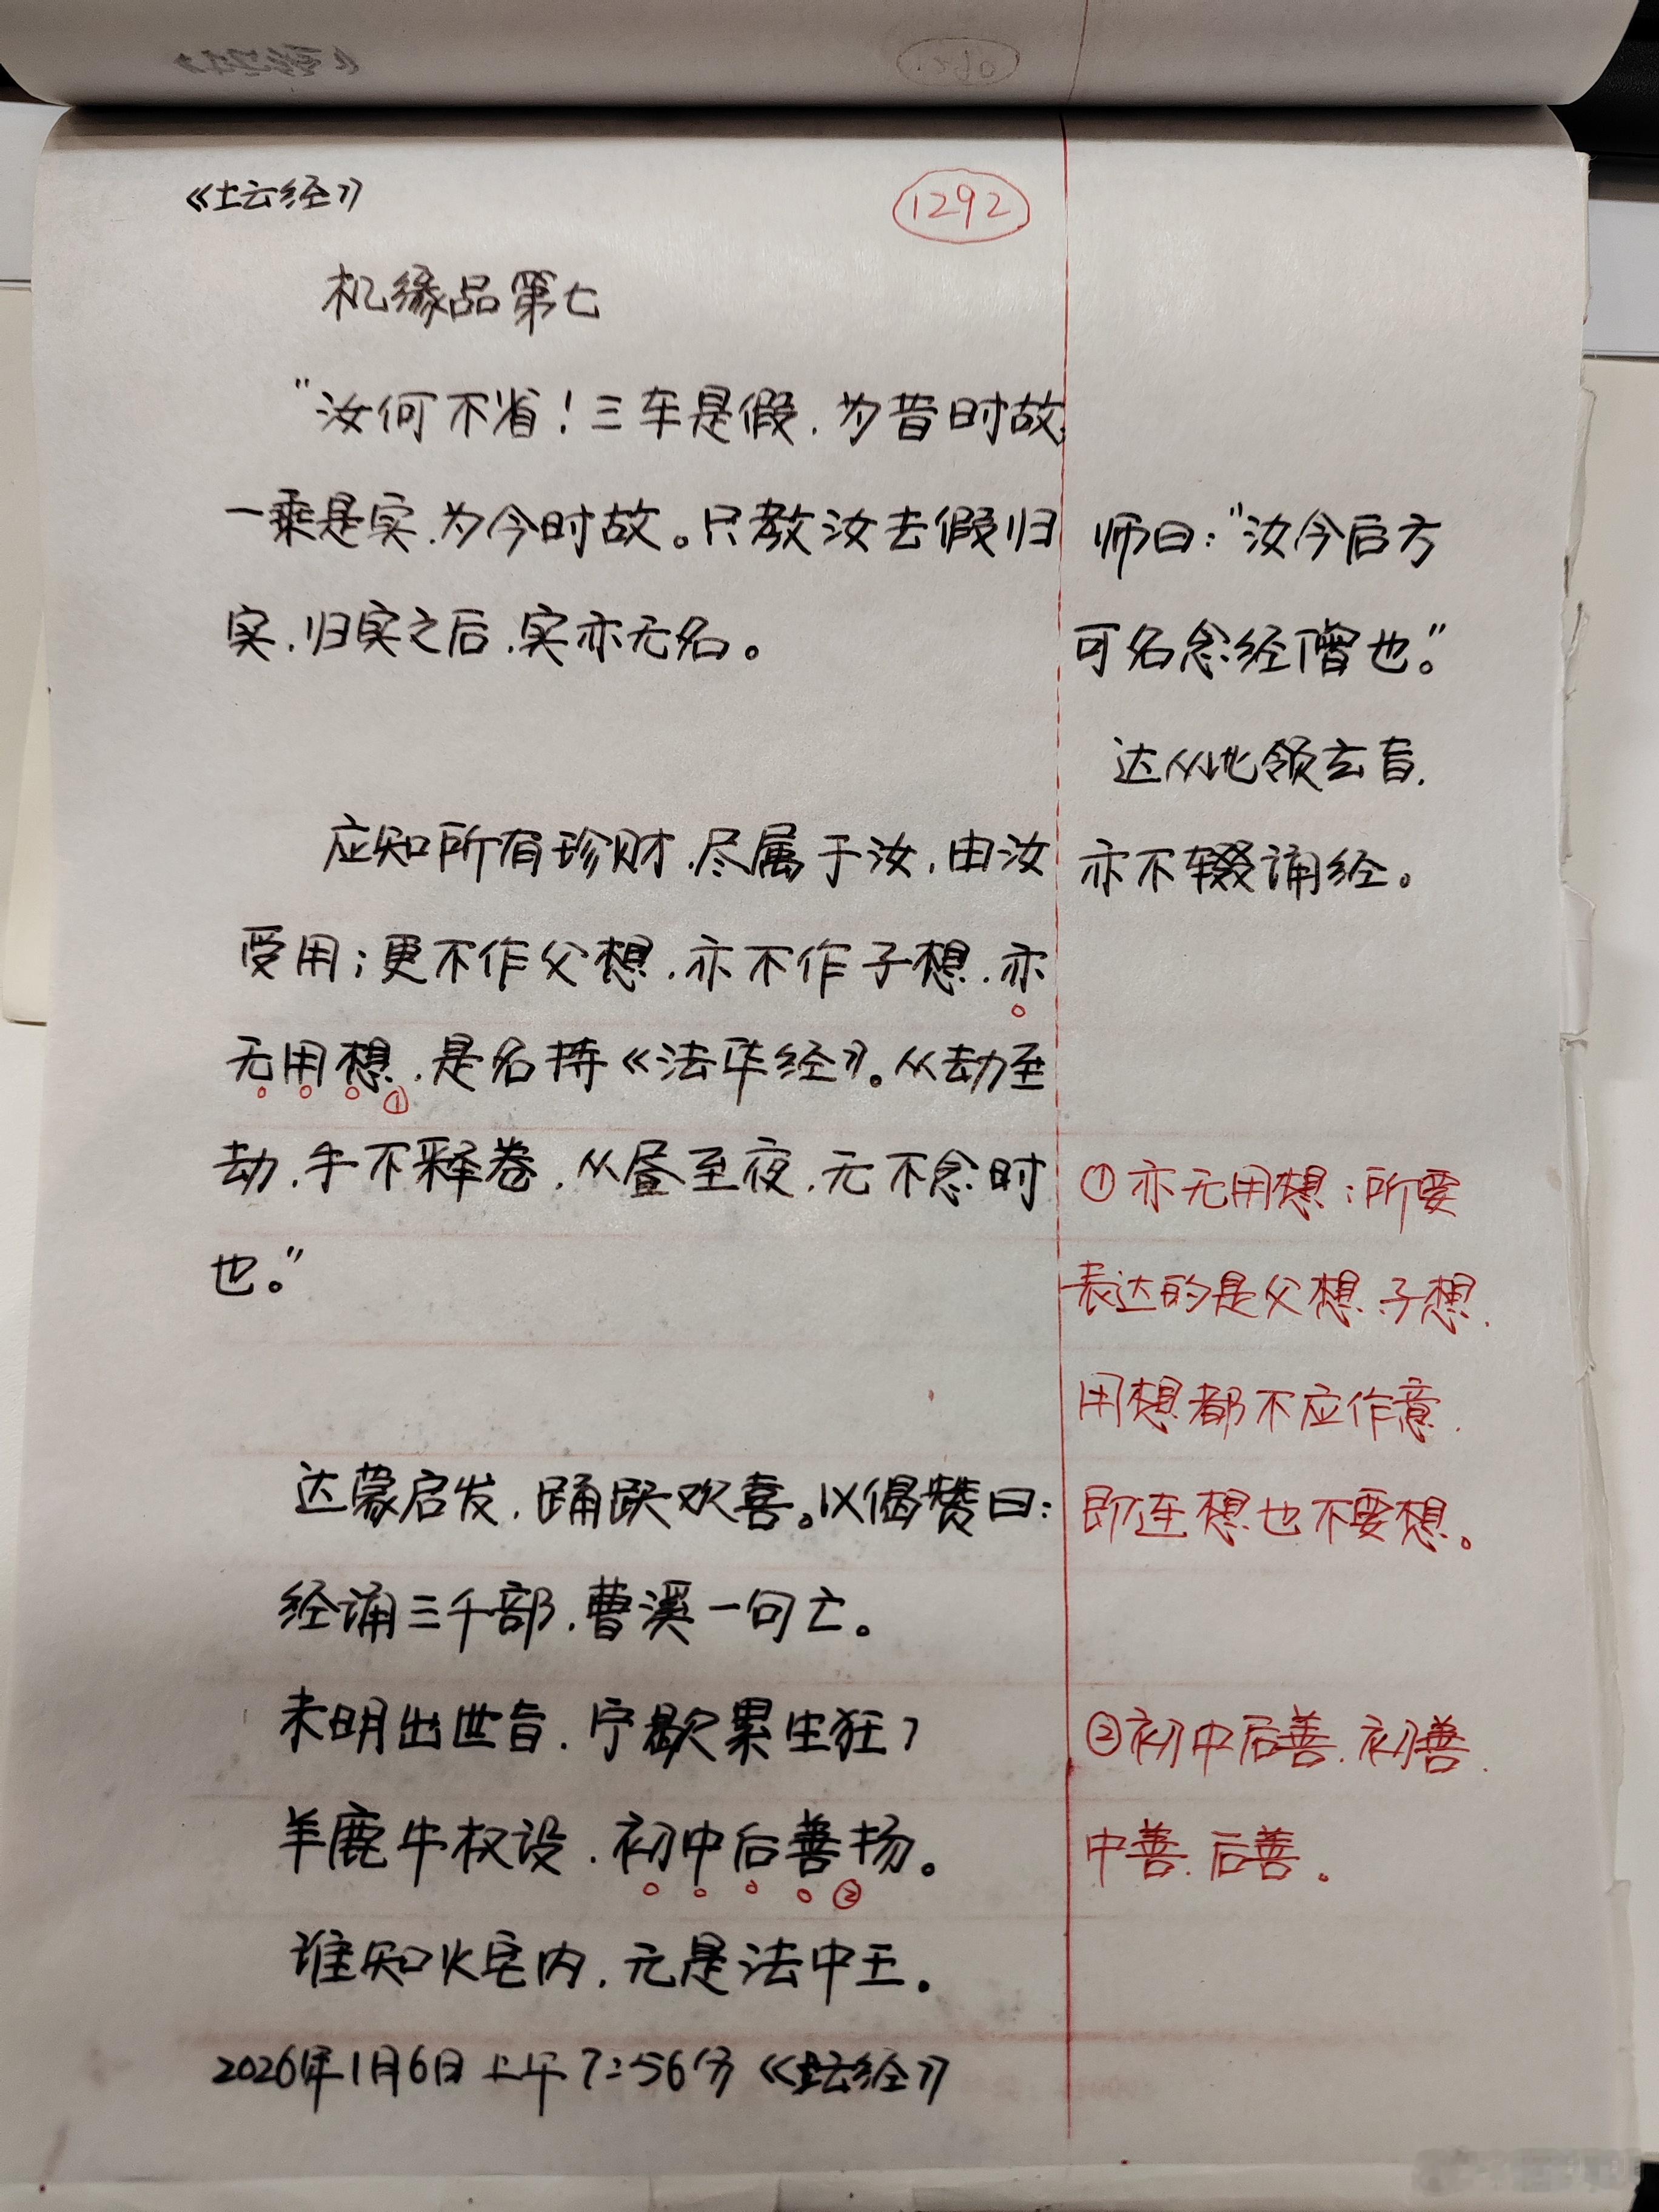 《坛经》
1292
机缘品第七
“汝何不省！三车是假，为昔时故，
一乘是实，为今时故。只教汝去假归
实，归实之后，实亦无名。
应知所有珍财，尽属于汝，由汝
受用；更不作父想，亦不作子想，亦
无用想①，是名持《法华经》。从劫至
劫，手不释卷，从昼至夜，无不念时
也。”
达蒙启发，踊跃欢喜。以偈赞曰：
经诵三千部，曹溪一句亡。
未明出世旨，宁歇累生狂？
羊鹿牛权设，初中后善②扬。
谁知火宅内，元是法中王。
2026年1月6日上午7:56分《坛经》
师曰：“汝今后方
可名念经僧也。”
达从此领玄旨，
亦不辍诵经。
①亦无用想：所要
表达的是父想、子想、
用想都不应作意，
即连想也不要想。
②初中后善：初善、
中善、后善。